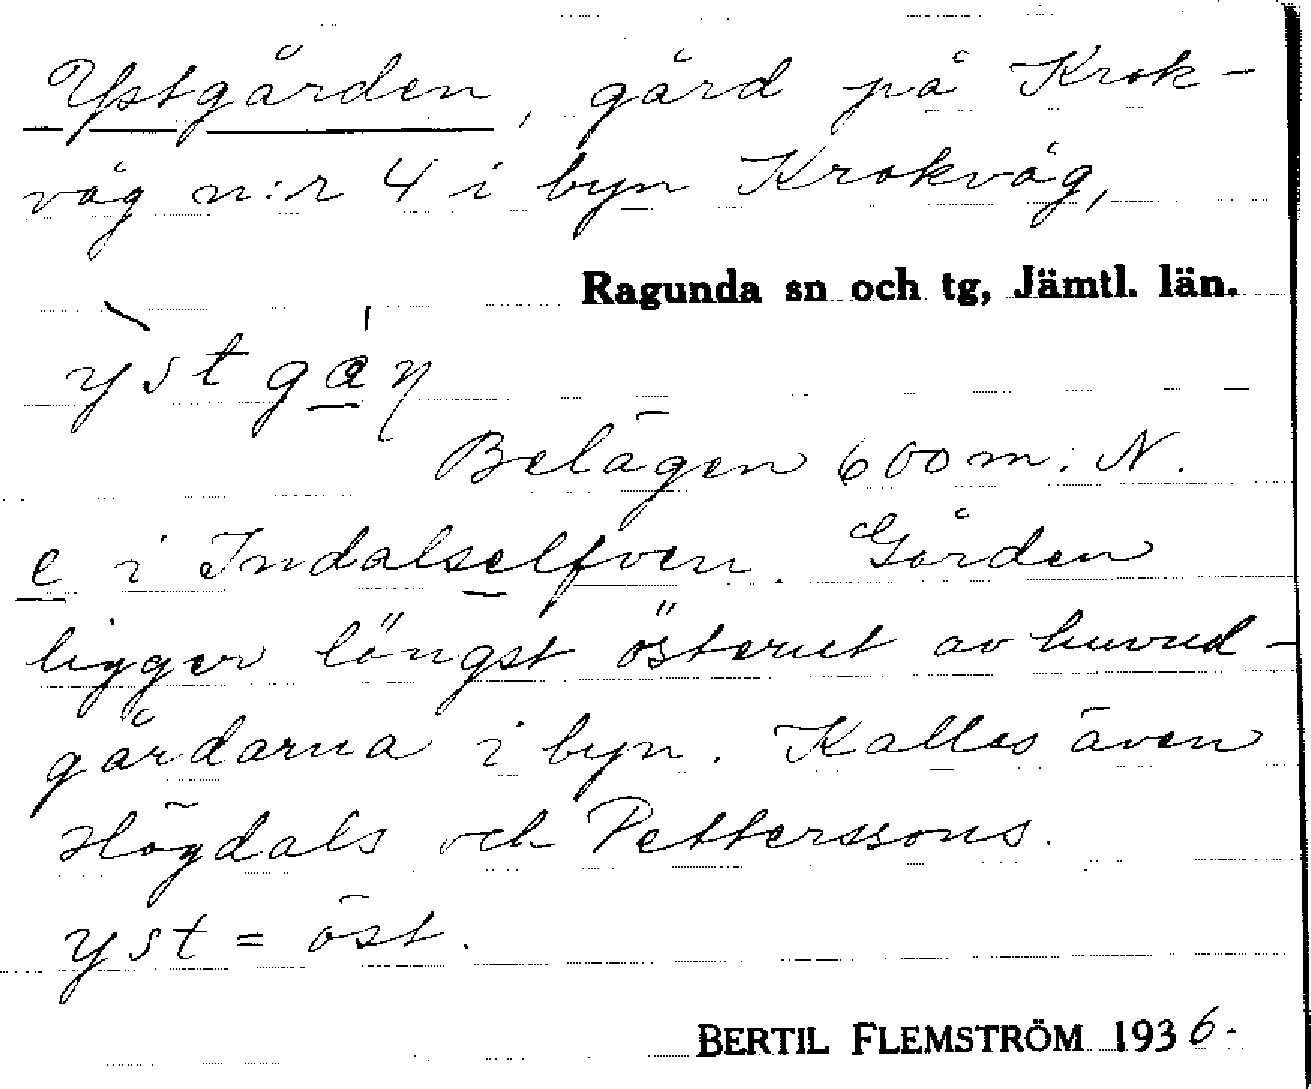 Ystgården, gård på Krok-
våg n:r 4 i byn Krokvåg,
Ragunda sn och tg, Jämtl. län.
Belägen 600 m. N.
e i Indalselfven. Gården
ligger längst österut av huvud-
gårdarna i byn. Kallas även
Högdals och Petterssons.
yst = öst.
BERTIL FLEMSTRÖM 1936.